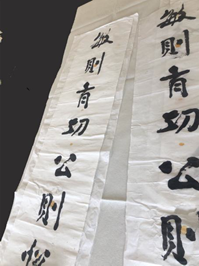 敏則有功公則
敏則有功公則